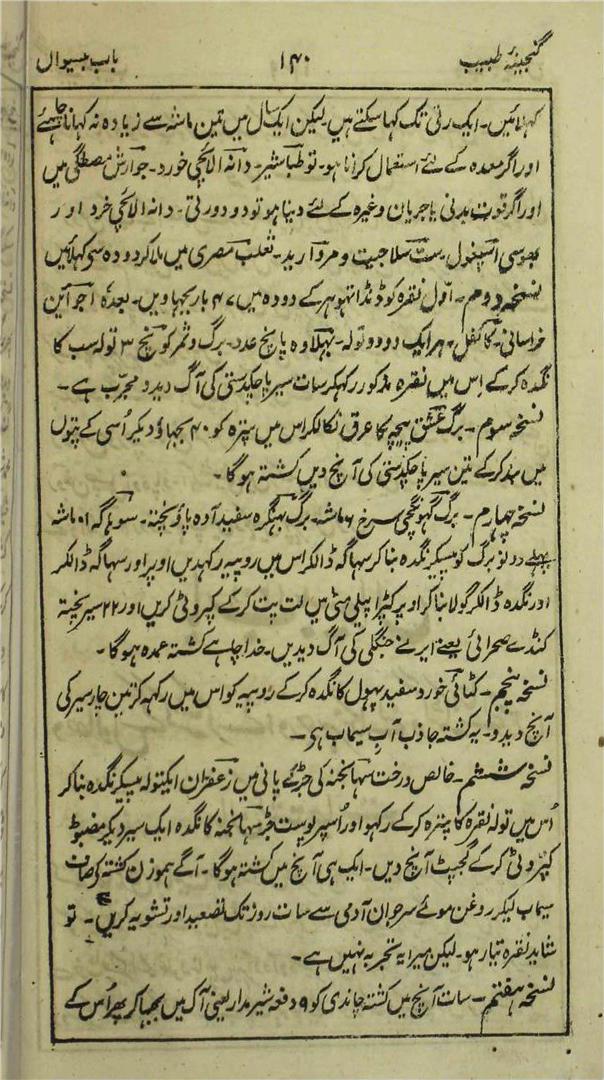 گنجینۂ طبیب ۱۴۰ باب بیسواں
کہلائیں۔ ایک رتی تک کہا سکتے ہیں۔ لیکن ایک سال میں تین ماشہ سے زیادہ نہ کہانا چاہئے
اور اگر معدہ کے لئے استعمال کرانا ہو۔ تو طباشیر۔ دانہ الائچی خورد۔ جوارش مصطگی میں
اور اگر قوت بدنی یا جریان وغیرہ کے لئے دینا ہو تو دو دو رتی۔ دانہ الائچی خرد اور
بہوسی اسپغول۔ ست سلاجیت و مروارید۔ ثعلب مصری میں ملا کر دودہ سے کہلائیں
نسخہ دوم۔ اوّل نقرہ کو ڈنڈا تہوہر کے دودہ میں ۴۷ بار بجہاویں۔ بعدہٗ اجوائین
خراسانی۔ کائفل۔ ہر ایک دو دو تولہ۔ بہلاوہ پانچ عدد۔ برگ و ثمر کونچ ۳ تولہ سب کا
نگدہ کر کے اس میں نقرہ مذکور رکہکر سات سیر پاچکدستی کی آگ دیدو مجرّب ہے۔
نسخہ سوم۔ برگ عشق پیچہ کا عرق نکالکر اس میں پترہ کو ۴۰ بجہاؤ دیکر اُسی کے پتوں
میں بند کر کے تین سیر پاچکدستی کی آنچ دیں کشتہ ہو گا۔
نسخہ چہارم۔ برگ گہونگچی سرخ ۶ ماشہ۔ برگ بہنگرہ سفید آدہ پاؤ پختہ۔ سوہاگہ ۱۰ ماشہ
پہلے دونو برگ کو پیسکر نگدہ بنا کر سہاگہ ڈالکر اس میں روپیہ رکہدیں اوپر اور سہاگہ ڈالکر
اور نگدہ ڈالکر گولا بنا کر اوپر کپڑا پیلی مٹی میں لت پت کر کے کپروٹی کریں اور ۲۲ سیر پختہ
کنڈے صحرائی یعنے ایرنے جنگلی کی آگ دیدیں۔ خدا چاہے کشتہ عمدہ ہو گا۔
نسخہ پنجم۔ کٹائی خورد سفید پہول کا نگدہ کر کے روپیہ کو اس میں رکہہ کر تین چار سیر کی
آنچ دیدو۔ یہ کشتہ جاذب آبِ سیماب ہے۔
نسخہ ششم۔ خالص درخت سہانجنہ کی جڑ کے پانی میں زعفران ایکتولہ پیسکر نگدہ بنا کر
اُس میں تولہ نقرہ کا پترہ کر کے رکہو اور اُسپر پوست جڑ سہانجنہ کا نگدہ ایک سیر دیکر مضبوط
کپروٹی کر کے گجپٹ آنچ دیں۔ ایک ہی آنچ میں کشتہ ہو گا۔ آگے ہموزن کشتہ کے صاف
سیماب لیکر روغن موئے سر جوان آدمی سے سات روز تک تصعید اور تشویہ کریں۔ تو
شاید نقرہ تیار ہو۔ لیکن میرا یہ تجربہ نہیں ہے۔
نسخہ ہفتم۔ سات آنچ میں کشتہ چاندی کو ۹ دفعہ شیر مدار یعنی آک میں بجہا کر پھر اُس کے